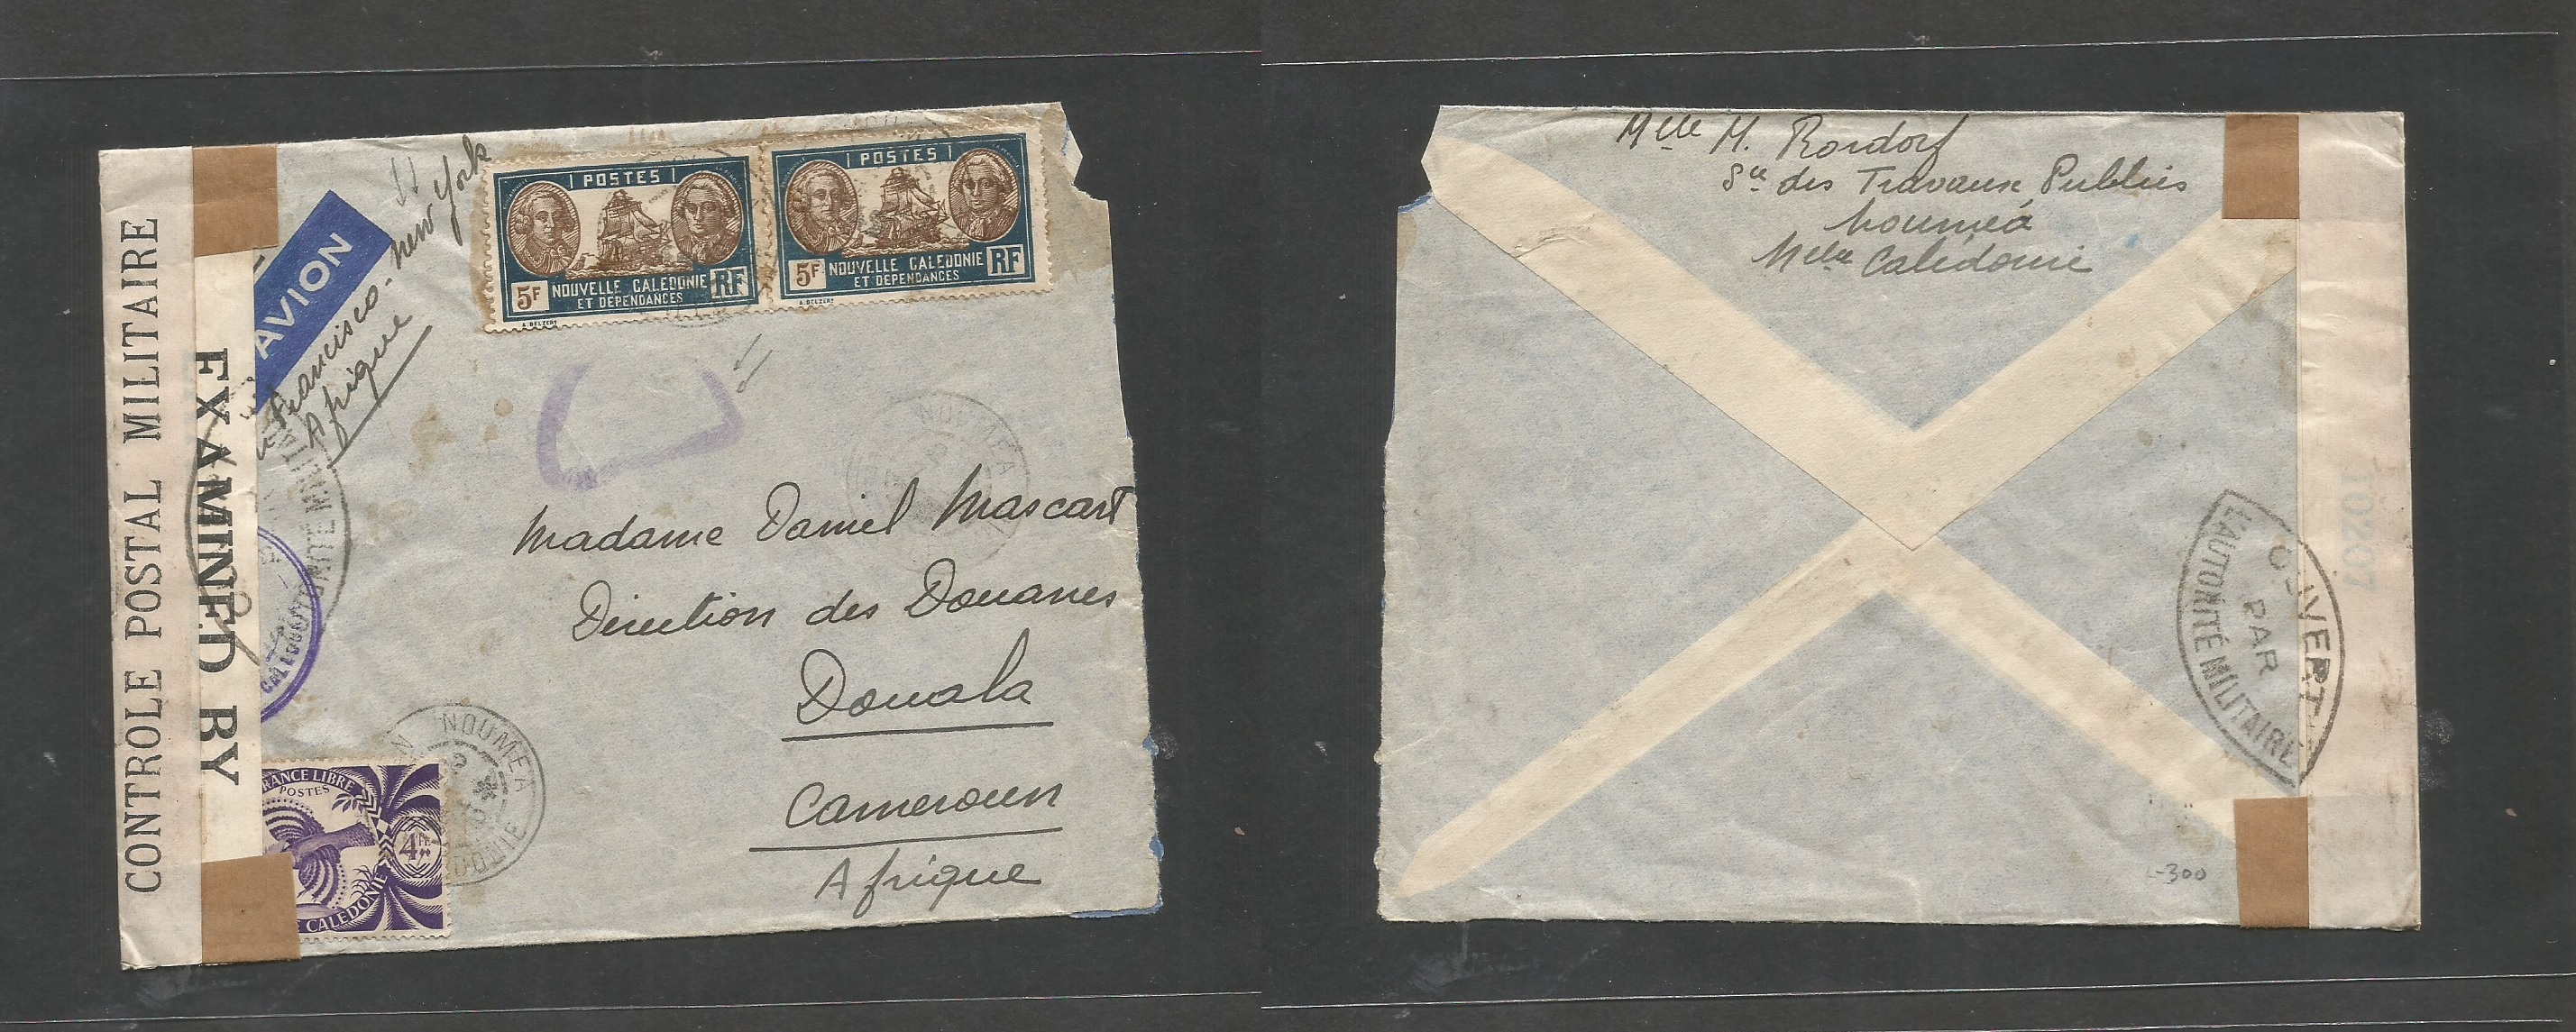 CONTROLE POSTAL MILITAIRE
EXAMINED BY
AVION
Francisco - New York
Afrique
POSTES
5F NOUVELLE CALEDONIE RF
ET DEPENDANCES
POSTES
5F NOUVELLE CALEDONIE RF
ET DEPENDANCES
NOUMEA
Madame Daniel Mascart
Direction des Douanes
Douala
Cameroun
Afrique
NOUMEA
RANCE LIBRE
POSTES
4 FR
CALEDONIE
Mlle M. Rordorf
Sce des Travaux Publics
Nouméa
Nelle Calédonie
10207
OUVERT
PAR
L'AUTORITÉ MILITAIRE
-300